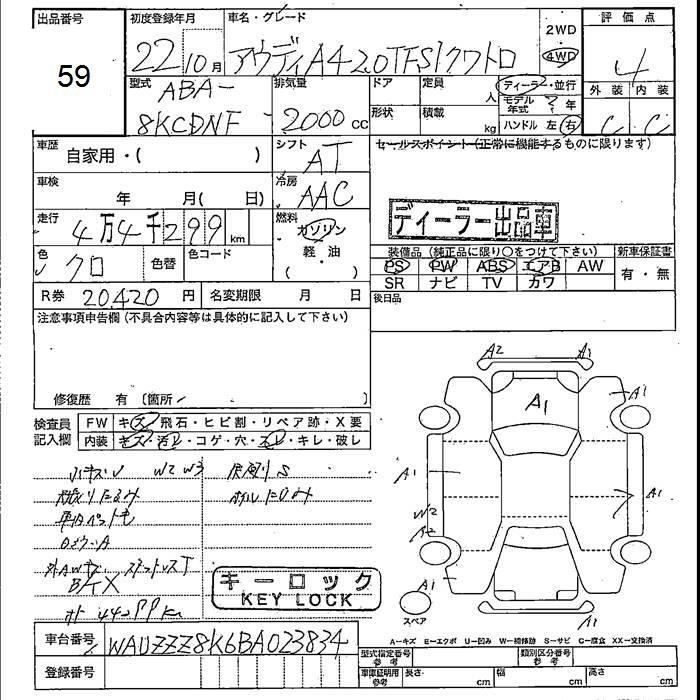 出品番号
59
初度登録年月
22 10月
車名・グレード
アウディA4 2.0TFSIクワトロ
2WD
4WD
評価点
4
外装 内装
C C
型式
ABA-
8KCDNF
排気量
2000 cc
ドア
定員
人
形状
積載
kg
ディーラー・並行
モデル年式 ? 年
ハンドル 左 右
車歴
自家用・( )
シフト
AT
セールスポイント(正常に機能するものに限ります)
車検
年 月( 日)
冷房
AAC
走行
4万4千299km
燃料
ガソリン
軽・油
( )
ディーラー出品車
色
クロ
色替
色コード
装備品(純正品に限り○をつけて下さい)
PS PW ABS エアB AW
SR ナビ TV カワ
新車保証書
有・無
R券 20420 円
名変期限 月 日
後日品
注意事項申告欄(不具合内容等は具体的に記入して下さい)
修復歴 有 〔箇所/ 〕
検査員記入欄
FW キズ・飛石・ヒビ割・リペア跡・X要
内装 キズ・汚レ・コゲ・穴・スレ・キレ・破レ
W2 W3
キーロック
KEY LOCK
A2 A1
A1
A1
A1
A1
W2
A2
A1
A1
スペア
A-キズ E-エクボ U-凹み W-補修跡 S-サビ C-腐食 XX-交換済
車台番号
WAUZZZ8K6BA023834
登録番号
型式指定番号 参考
類別区分番号 参考
車庫証明用 参考
長さ cm
幅 cm
高さ cm